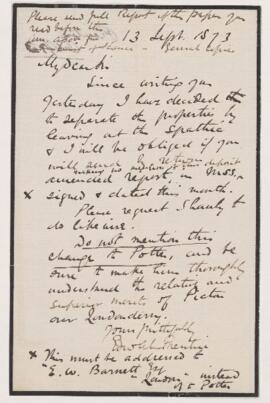 Please send full Report of the paper you
read before the
13 Sept. 1873
My dear Sir
Since writing you
yesterday I have decided
to separate the properties by
leaving out the Spathic
& I will be obliged if you
will send by return
amended report, in MSS.
x signed & dated this month.
Please request Shanly to
do likewise.
Do not mention this
change to Potter, and be
sure to make him thoroughly
understand the relative and
superior merits of Pictou
over Londonderry.
Yours faithfully
x This must be addressed to
"E. W. Barnett Esq
London" instead
of to Potter